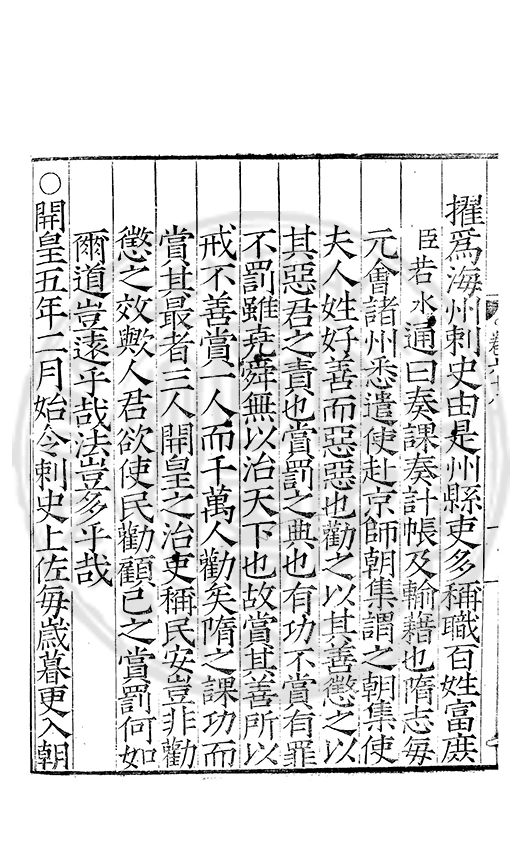 擢爲海州刺史由是州縣吏多稱職百姓富庶
臣若水通曰奏課奏計帳及輸藉也隋志每
元會諸州悉遣使赴京師朝集謂之朝集使
夫人姓好善而惡惡也勸之以其善懲之以
其惡君之責也賞罰之典也有功不賞有罪
不罰雖堯舜無以治天下也故賞其善所以
戒不善賞一人而千萬人勸矣隋之課功而
賞其最者三人開皇之治吏稱民安豈非勸
懲之效歟人君欲使民勸顧己之賞罰何如
爾道豈遠乎哉法豈多乎哉
○開皇五年二月始令刺史上佐每歲暮更入朝